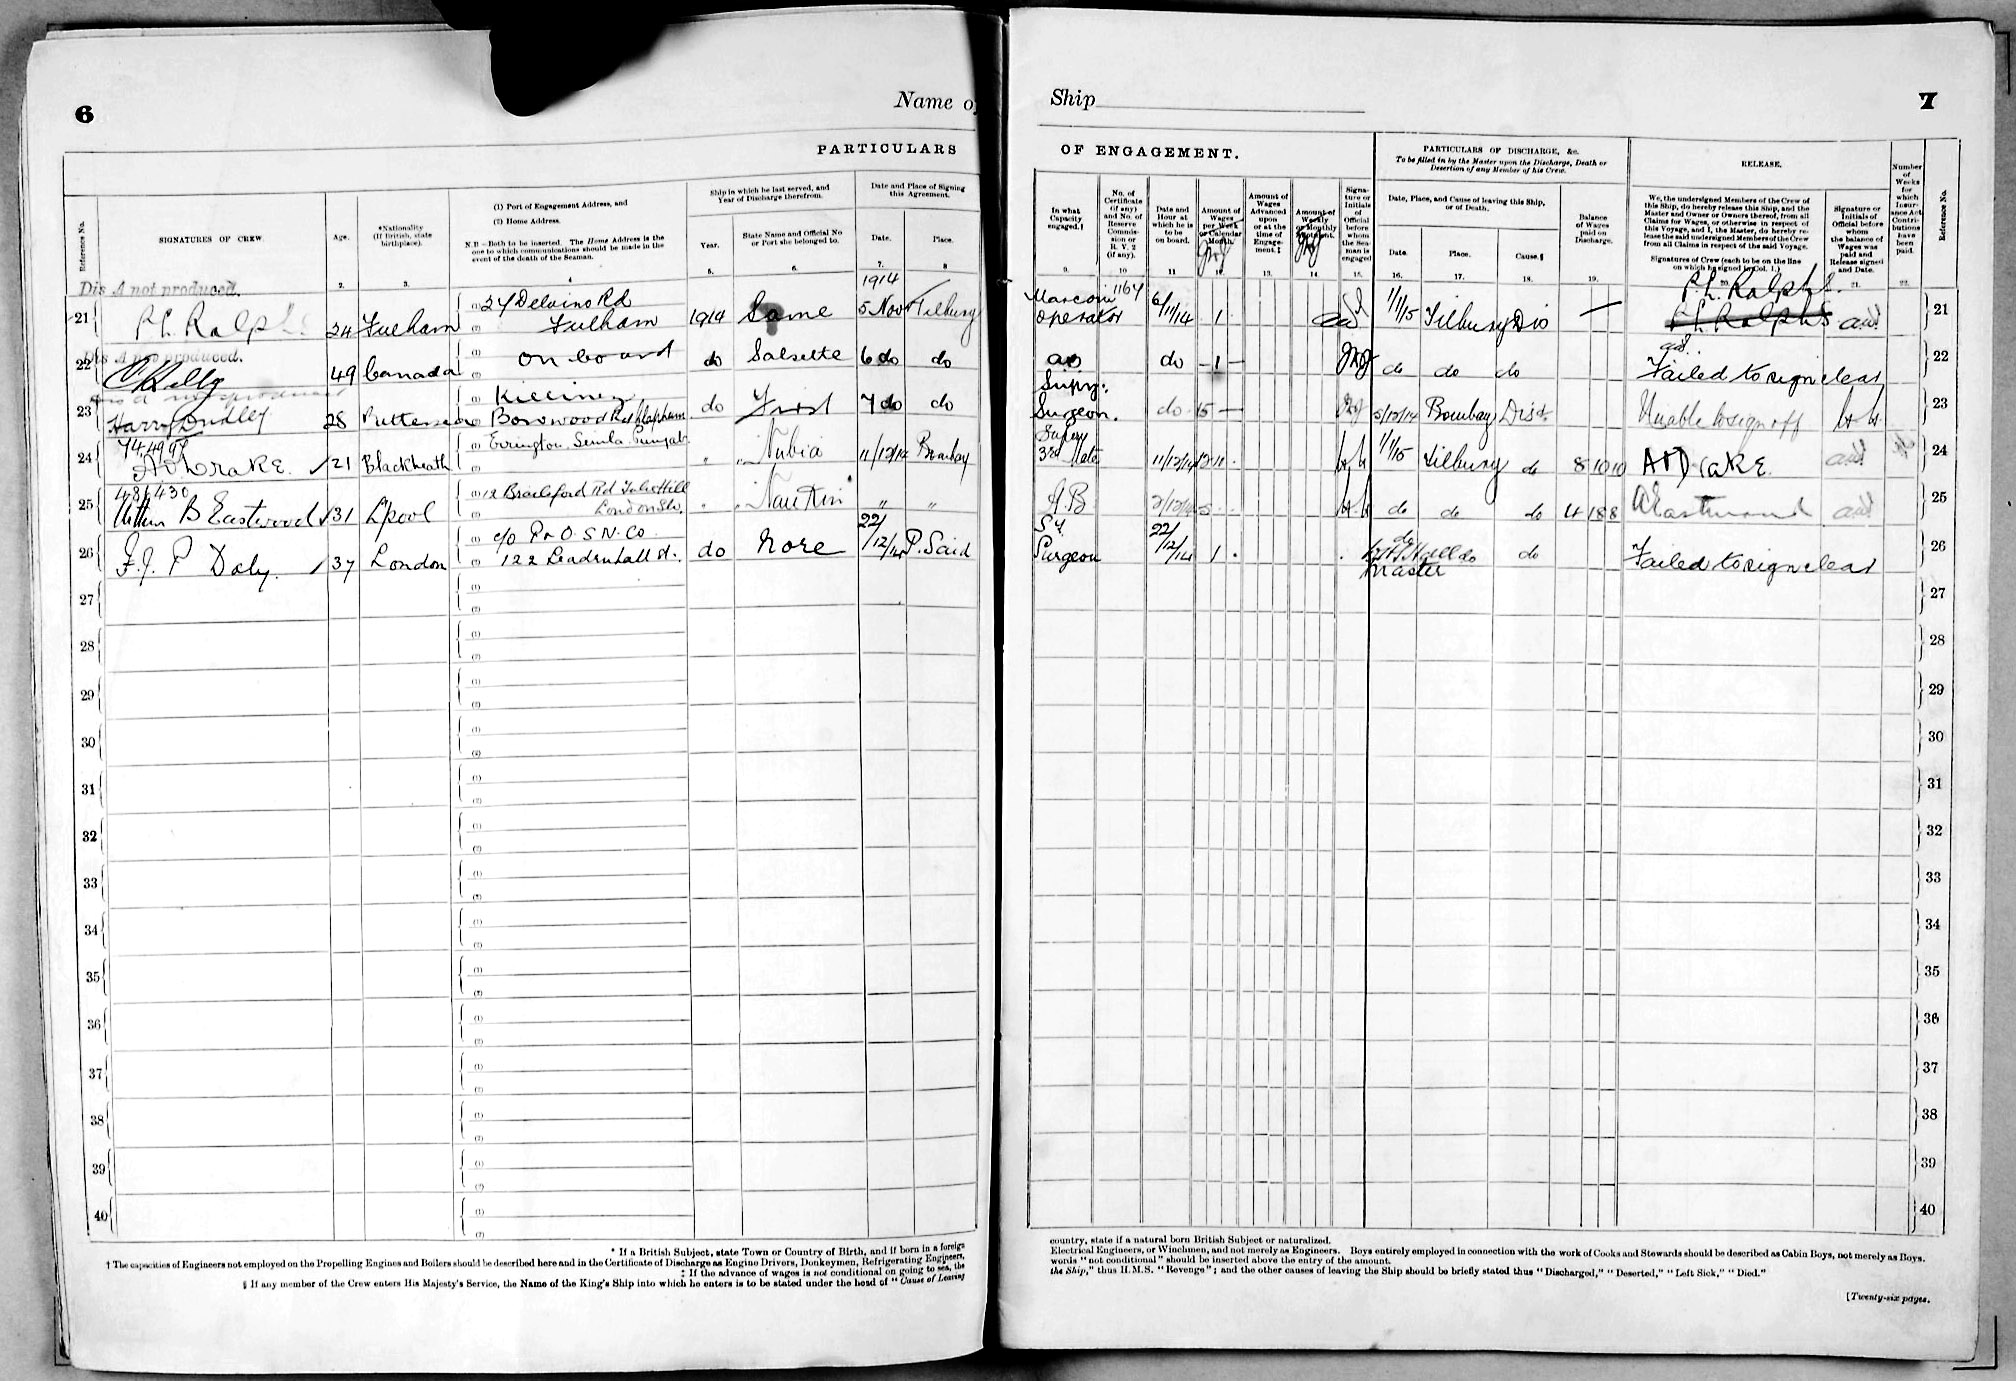 6
Name o
PARTICULARS
Reference No.
SIGNATURES OF CREW.
Age.
*Nationality
(If British, state
birthplace).
(1) Port of Engagement Address, and
(2) Home Address.
N.B.—Both to be inserted. The Home Address is the
one to which communications should be made in the
event of the death of the Seaman.
Ship in which he last served, and
Year of Discharge therefrom.
Year.
State Name and Official No
or Port she belonged to.
Date and Place of Signing
this Agreement.
Date.
Place.
2. 3. 4 5. 6. 7. 8
1914
Dis A not produced.
21 P. L. Ralphs 24 Fulham (1) 27 Delvino Rd
(2) Fulham 1914 Same 5 Nov Tilbury
Dis A not produced.
22 49 Canada (1) on board do Salsette 6 do do
23 Harry Dudley 28 Battersea (1) Killiney
(2) do First 7 do do
24 A Drake 21 Blackheath (1) Simla Punjab
" Nubia 11/12/14 Bombay
481430
25 B Eastwood 31 L'pool (1) 12 Brailsford Rd Tulse Hill
London SW. " " " "
26 F. J. P Daly. 37 London (1) c/o P & O. S. N. Co.
(2) 122 Leadenhall St. do Nore 22/12/14 P. Said
27
28
29
30
31
32
33
34
35
36
37
38
39
40
* If a British Subject, state Town or Country of Birth, and if born in a foreign
† The capacities of Engineers not employed on the Propelling Engines and Boilers should be described here and in the Certificate of Discharge as Engine Drivers, Donkeymen, Refrigerating Engineers,
‡ If the advance of wages is not conditional on going to sea, the
§ If any member of the Crew enters His Majesty's Service, the Name of the King's Ship into which he enters is to be stated under the head of "Cause of Leaving
Ship
7
OF ENGAGEMENT.
PARTICULARS OF DISCHARGE, &c.
To be filled in by the Master upon the Discharge, Death or
Desertion of any Member of his Crew.
RELEASE.
In what
Capacity
engaged.†
No. of
Certificate
(if any)
and No. of
Reserve
Commis-
sion or
R. V. 2
(if any).
Date and
Hour at
which he is
to be
on board.
Amount of
Wages
per Week
or Calendar
Month.
Amount of
Wages
Advanced
upon
or at the
time of
Engage-
ment.‡
Amount of
Weekly
or Monthly
Allotment.
Signa-
ture or
Initials
of
Official
before
whom
the Sea-
man is
engaged
Date, Place, and Cause of leaving this Ship,
or of Death.
Date.
Place.
Cause.§
Balance
of Wages
paid on
Discharge.
We, the undersigned Members of the Crew of
this Ship, do hereby release this Ship, and the
Master and Owner or Owners thereof, from all
Claims for Wages, or otherwise in respect of
this Voyage, and I, the Master, do hereby re-
lease the said undersigned Members of the Crew
from all Claims in respect of the said Voyage.
Signatures of Crew (each to be on the line
on which he signed in Col. 1.)
Signature or
Initials of
Official before
whom
the balance of
Wages was
paid and
Release signed
and Date.
Number
of
Weeks
for
which
Insur-
ance Act
Contri-
butions
have
been
paid.
Reference No.
9. 10 11 12. 13. 14. 15. 16. 17. 18. 19. 20. 21. 22.
P. L. Ralphs.
Marconi 1164
operator 6/11/14 1 1/1/15 Tilbury Dis — P. L. Ralphs 21
do 1 do do do Failed to sign clear 22
Supy:
Surgeon. do 15 — 5/12/14 Bombay Disd. Unable to sign off 23
3rd Mate 11/12/14 1/1/15 Tilbury do 8 10 10 A Drake. 24
A.B 5 do do do 4 18 8 A Eastwood 25
Sy.
Surgeon 22/12/14 1 do do do Failed to sign clear 26
Master
27
28
29
30
31
32
33
34
35
36
37
38
39
40
country, state if a natural born British Subject or naturalized.
Electrical Engineers, or Winchmen, and not merely as Engineers. Boys entirely employed in connection with the work of Cooks and Stewards should be described as Cabin Boys, not merely as Boys.
words "not conditional" should be inserted above the entry of the amount.
the Ship," thus H.M.S. "Revenge"; and the other causes of leaving the Ship should be briefly stated thus "Discharged," "Deserted," "Left Sick," "Died."
[Twenty-six pages.